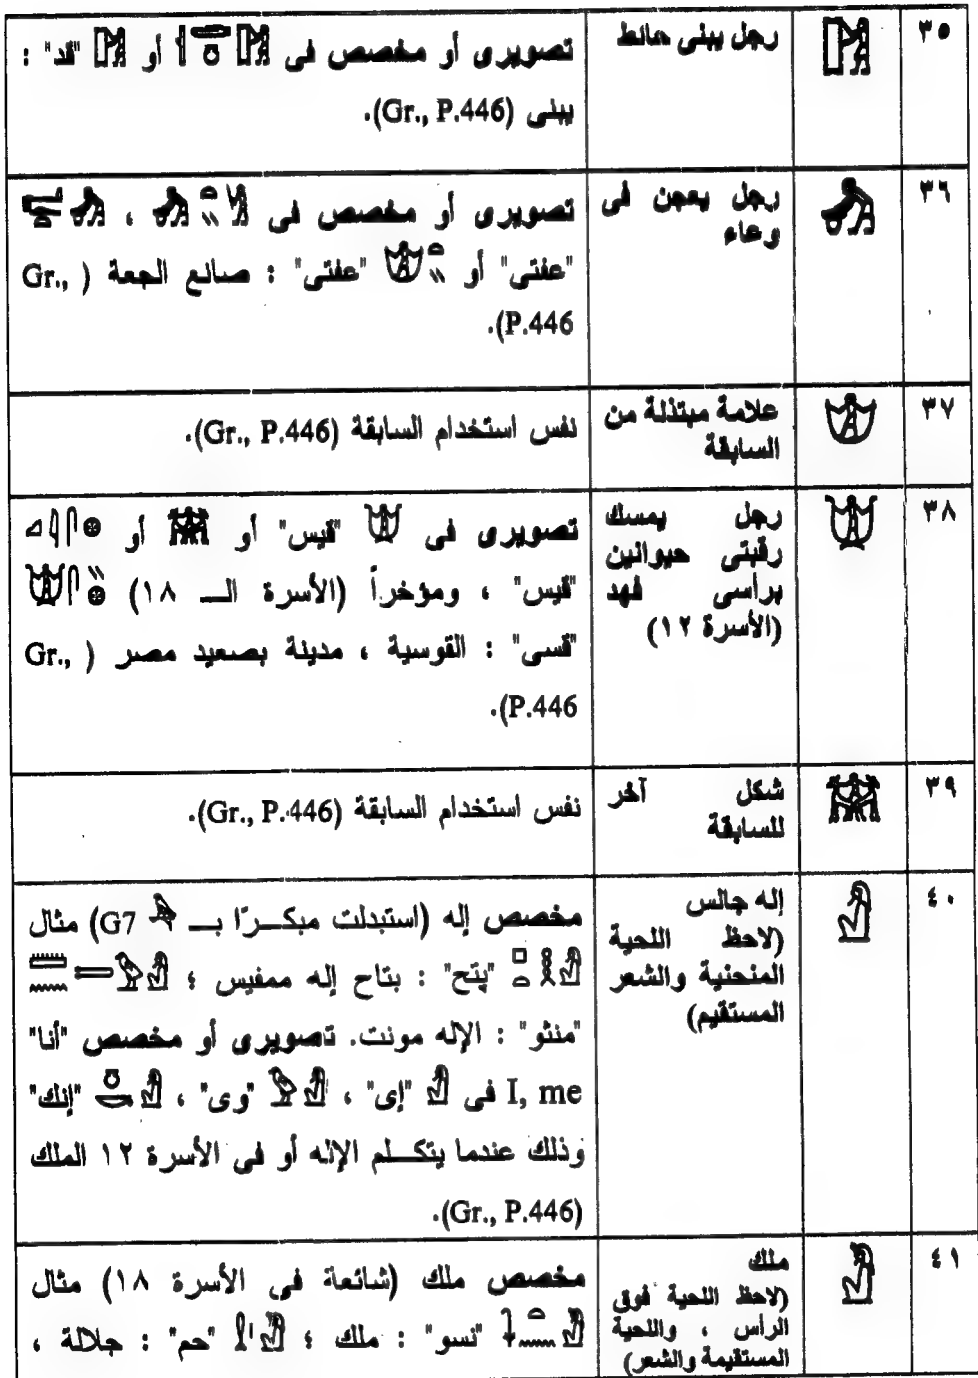 ٣٥
𓀨
رجل يبنى حائط
تصويرى أو مخصص فى أو "قد" :
يبنى (Gr., P.446).
٣٦
𓀩
رجل يعجن فى
وعاء
تصويرى أو مخصص فى ،
"عفتى" أو "عفتى" : صانع الجعة ( Gr.,
P.446).
٣٧
𓀪
علامة مبتذلة من
السابقة
نفس استخدام السابقة (Gr., P.446).
٣٨
𓀫
رجل يمسك
رقبتى حيوانين
برأسى فهد
(الأسرة ١٢)
تصويرى فى "قيس" أو أو
"قيس" ، ومؤخراً (الأسرة الـ ١٨)
"قسى" : القوسية ، مدينة بصعيد مصر ( Gr.,
P.446).
٣٩
𓀬
شكل آخر
للسابقة
نفس استخدام السابقة (Gr., P.446).
٤٠
𓀭
إله جالس
(لاحظ اللحية
المنحنية والشعر
المستقيم)
مخصص إله (استبدلت مبكرًا بـ G7) مثال
"پتح" : بتاح إله ممفيس ؛
"منثو" : الإله مونت. تصويرى أو مخصص "أنا"
I, me فى "إى" ، "وى" ، "إنك"
وذلك عندما يتكلم الإله أو فى الأسرة ١٢ الملك
(Gr., P.446).
٤١
𓀯
ملك
(لاحظ اللحية فوق
الرأس ، واللحية
المستقيمة والشعر)
مخصص ملك (شائعة فى الأسرة ١٨) مثال
"نسو" : ملك ؛ "حم" : جلالة ،